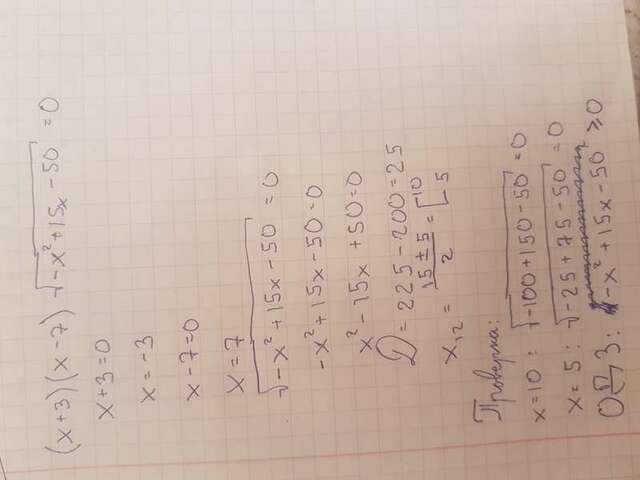 (x+3)(x-7) √(-x²+15x-50) = 0
x+3=0
x = -3
x-7=0
x = 7
√(-x²+15x-50) = 0
-x²+15x-50=0
x²-15x+50=0
D = 225-200=25
x₁₂ = (15±5)/2 = [10 5
Проверка:
x=10 : √(-100+150-50) = 0
x= 5 : √(-25+75-50) = 0
ОДЗ: -x²+15x-50 ≥0